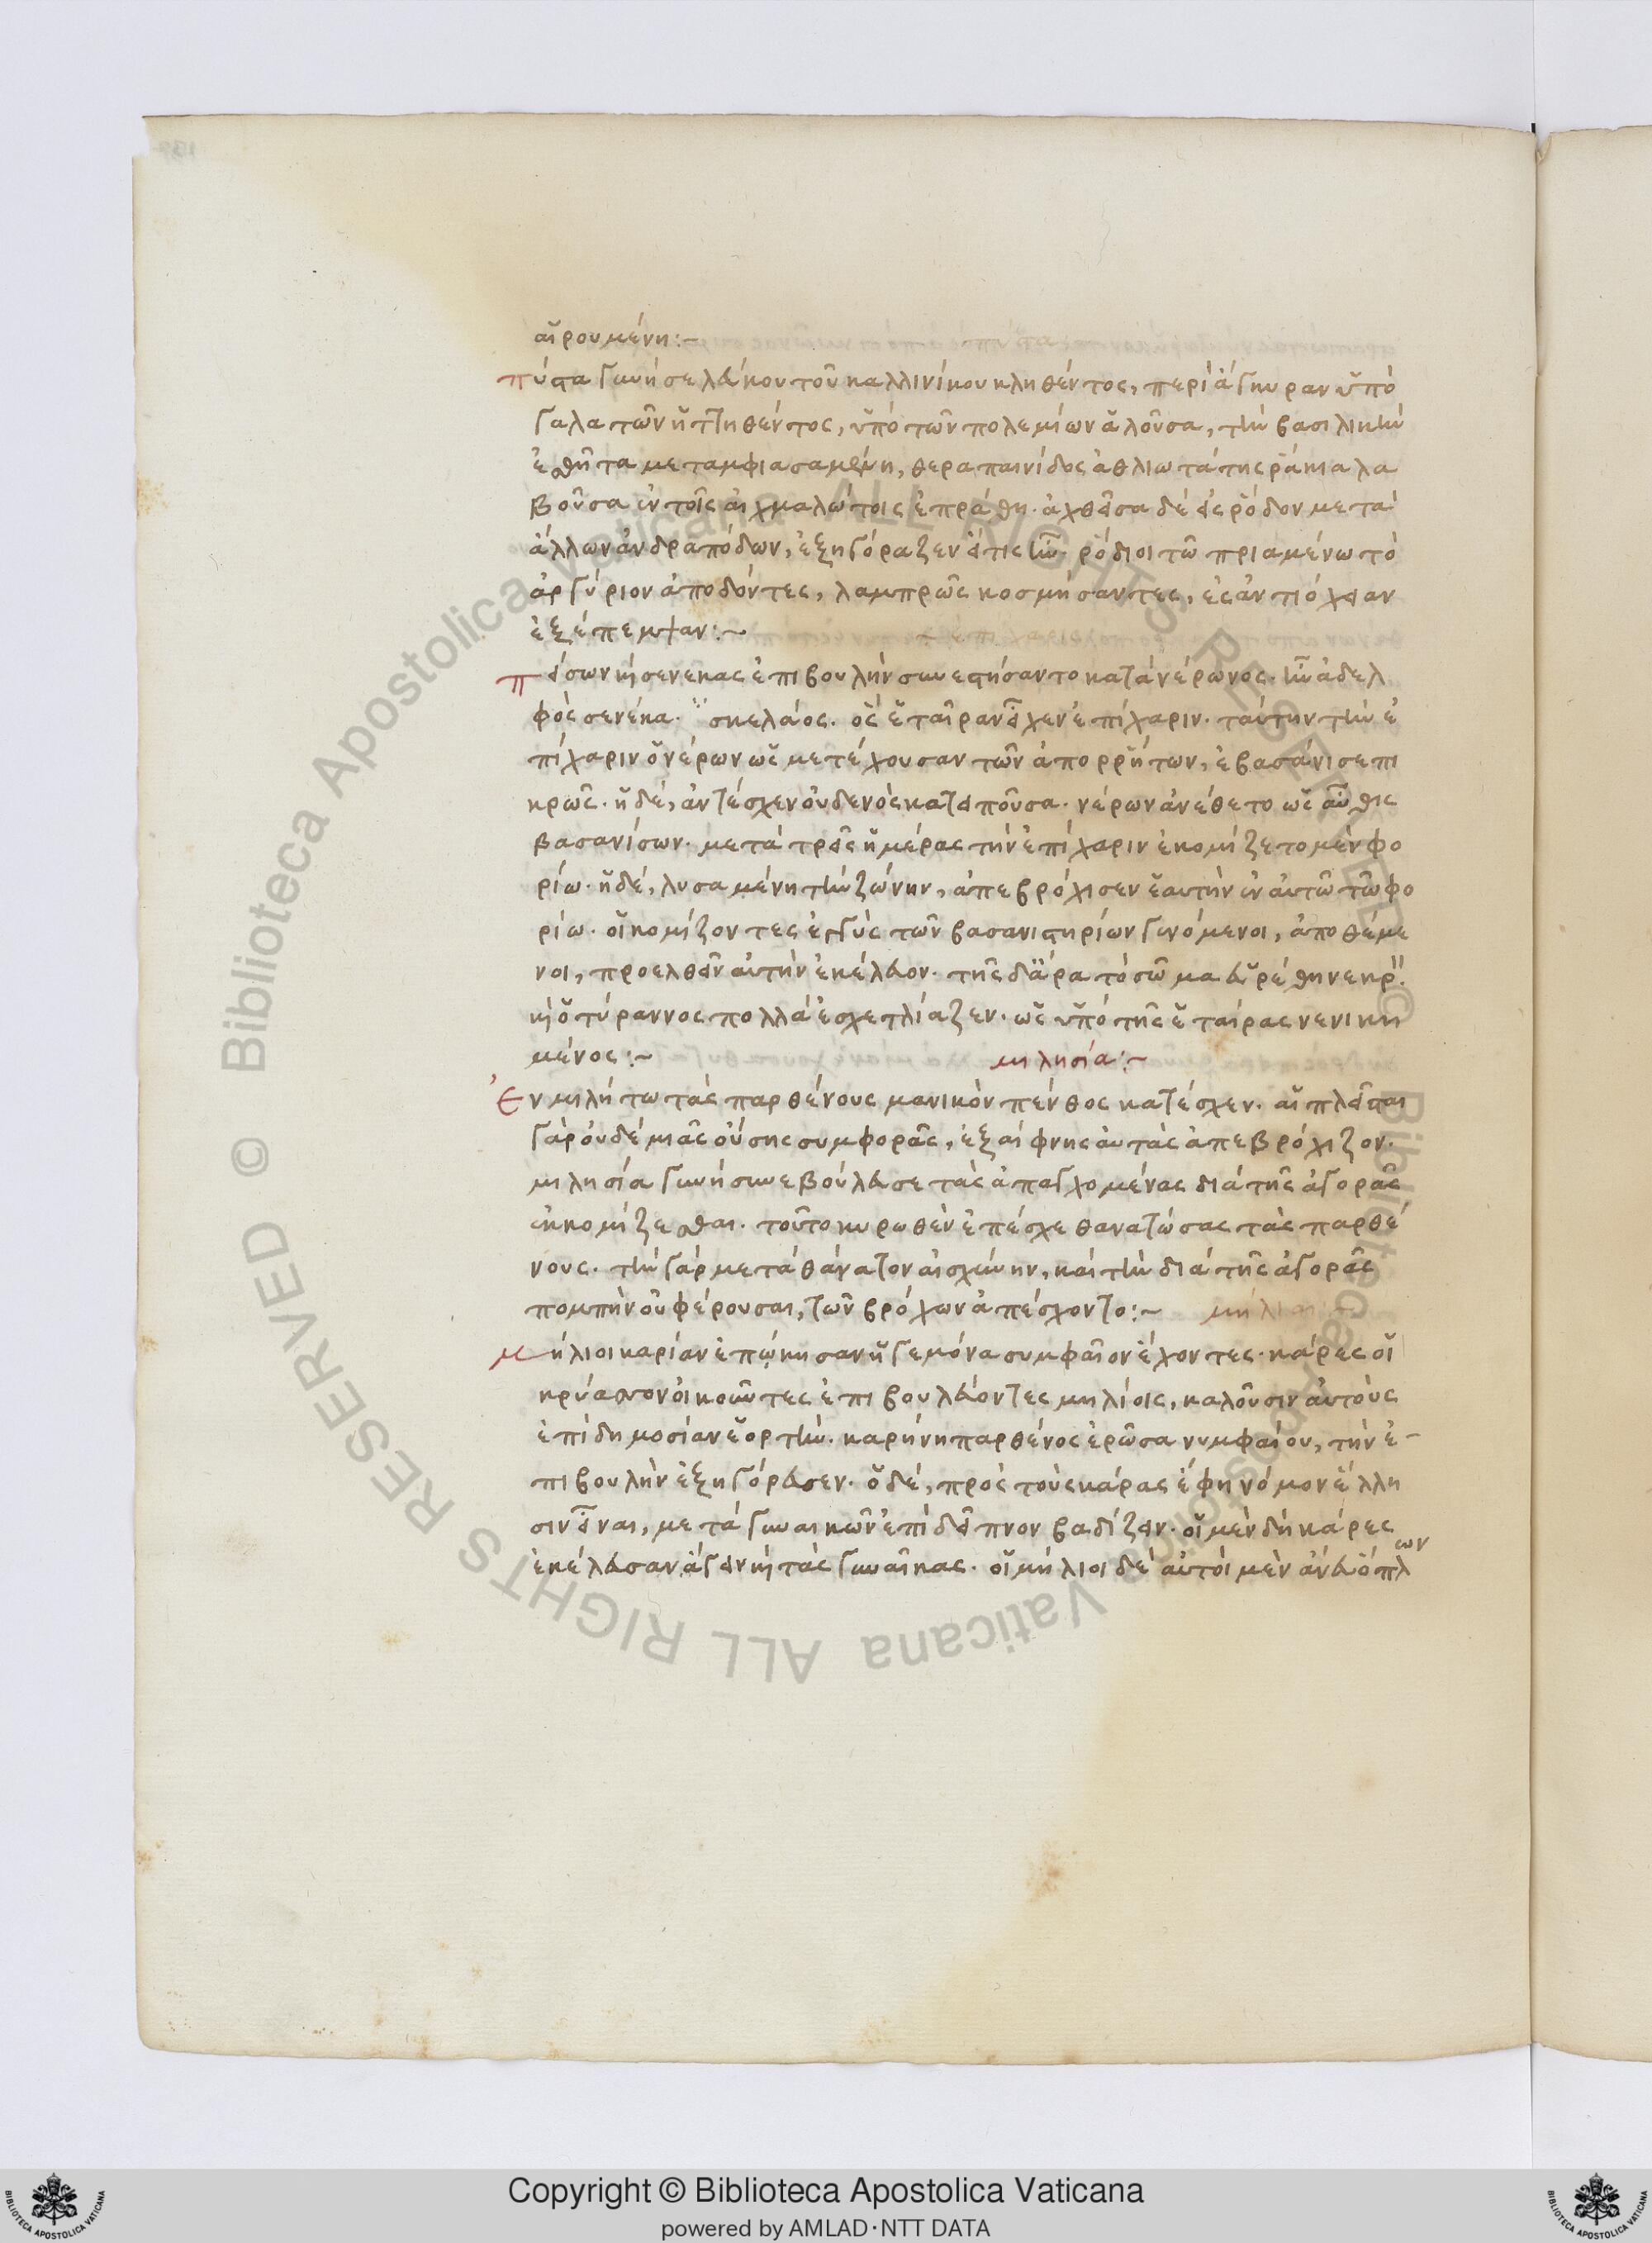 αἱρουμένη:~
Πύστα γυνὴ σελεύκου τοῦ καλλινίκου κληθέντος, περὶ ἄγκυραν ὑπὸ
γαλατῶν ἡττηθέντος, ὑπὸ τῶν πολεμίων ἁλοῦσα, τὴν βασιλικὴν
ἐσθῆτα μεταμφιασαμένη, θεραπαινίδος ἀθλιωτάτης ῥάκια λα
βοῦσα ἐν τοῖς αἰχμαλώτοις ἐπράθη. ἀχθεῖσα δὲ εἰς ῥόδον μετὰ
ἄλλων ἀνδραπόδων, ἐξηγόραζεν ἥτις ἦν. ῥόδιοι τῶ πριαμένω τὸ
ἀργύριον ἀποδόντες, λαμπρῶς κοσμήσαντες, ἐς ἀντιόχειαν
ἐξέπεμψαν:~
Πείσων καὶ σενέκας ἐπιβουλὴν συνεστήσαντο κατὰ νέρωνος. ἦν ἀδελ
φὸς σενέκα. σκελάος. ὃς ἑταῖραν εἶχεν ἐπίχαριν. ταύτην τὴν ἐ
πίχαριν ὁ νέρων ὡς μετέχουσαν τῶν ἀπορρήτων, ἐβασάνισε πι
κρῶς. ἡ δὲ, ἀντέσχεν οὐδενὸς κατειποῦσα. νέρων ἀνέθετο ὡς αὖθις
βασανίσων. μετὰ τρεῖς ἡμέρας τὴν ἐπίχαριν ἐκομίζετο μὲν φο
ρίω. ἡ δὲ, λυσαμένη τὴν ζώνην, ἀπεβρόχισεν ἑαυτὴν ἐν αὐτῶ τῶ φο
ρίω. οἱ κομίζοντες ἐγγὺς τῶν βασανιστηρίων γινόμενοι, ἀποθέμε
νοι, προελθεῖν αὐτὴν ἐκέλευον. τῆς δ' ἄρα τὸ σῶμα εὑρέθη νεκρ.
καὶ ὁ τύραννος πολλὰ ἐσχετλίαζεν. ὡς ὑπὸ τῆς ἑταίρας νενικη
μένος:~ μιλησία:~
Ἐν μιλήτω τὰς παρθένους μανικὸν πένθος κατέσχεν. αἱ πλεῖσται
γὰρ οὐδὲ μιᾶς οὔσης συμφορᾶς, ἐξαίφνης αὑτὰς ἀπεβρόχιζον.
μιλησία γυνὴ συνεβούλευσε τὰς ἀπαγχομένας διὰ τῆς ἀγορᾶς
ἐκκομίζεσθαι. τοῦτο κυρωθὲν ἐπέσχε θανατώσας τὰς παρθέ
νους. τὴν γὰρ μετὰ θάνατον αἰσχύνην, καὶ τὴν διὰ τῆς ἀγορᾶς
πομπὴν οὐ φέρουσαι, τῶν βρόχων ἀπέσχοντο:~ μήλιαι:~
Μήλιοι καρίαν ἐπώκησαν ἡγεμόνα συμφαῖον ἔχοντες. κάρες οἱ
κρύασσον οἰκοῦντες ἐπιβουλεύοντες μηλίοις, καλοῦσιν αὐτοὺς
ἐπὶ δημοσίαν ἑορτήν. καρήνη παρθένος ἐρῶσα νυμφαίου, τὴν ἐ-
πιβουλὴν ἐξηγόρευσεν. ὁ δὲ, πρὸς τοὺς κάρας ἔφη νόμον ἕλλη
σιν εἶναι, μετὰ γυναικῶν ἐπὶ δεῖπνον βαδίζειν. οἱ μὲν δὴ κάρες
ἐκέλευσαν ἄγειν καὶ τὰς γυναῖκας. οἱ μήλιοι δὲ αὐτοὶ μὲν ἄνευ ὅπλων